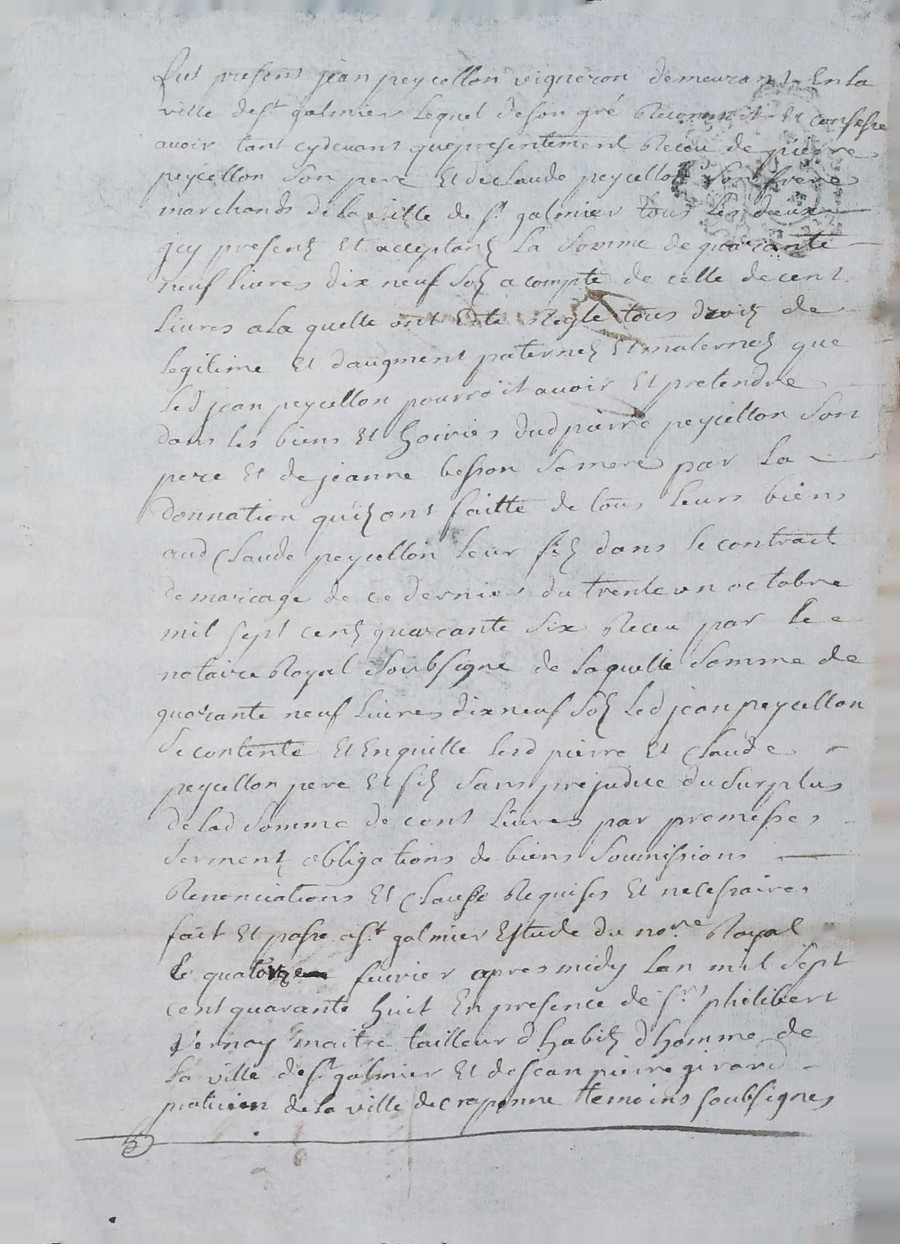 fut present jean peycellon vigneron demeurant En la
ville de st galmier Lequel de son gré Reconnoit Et confesse
avoir tant cydevant que presentement Receu de pierre
peycellon Son pere Et de claude peycellon Son frere
marchands de la ville de st galmier tous les deux
jcy presentz Et acceptantz La Somme de quarante
neuf livres dix neuf solz a compte de celle de cent
Livres a La quelle ont Esté Reglé tous droitz de
legitime Et daugment paternelz Et maternelz que
Led jean peycellon pourroit avoir Et pretendre
dans les biens Et hoiries dud pierre peycellon Son
pere Et de jeanne besson Sa mere par La
donnation quilz ont faitte de tous leurs biens
aud Claude peycellon leur filz dans le contract
de mariage de ce dernier du trente un octobre
mil sept centz quarante Six Receu par le
notaire Royal Soubsigné de laquelle Somme de
quarante neuf Livres dix neuf Solz Led jean peycellon
Se contente Et En quitte lesd pierre Et Claude
peycellon pere Et filz Sans prejudice du Surplus
de lad Somme de cent Livres par promesses
Serment obligations de biens Soumissions
Renonciations Et Clause Requises Et necessaires
fait Et passé a st galmier Estude du nore Royal
Le quatorze fevrier apres midy Lan mil Sept
cent quarante huit En presence de sr philibert
Vernay maitre tailleur dhabitz dhomme de
La ville de st galmier Et de jean pierre girard
praticien de la ville de craponne temoins soubsignes